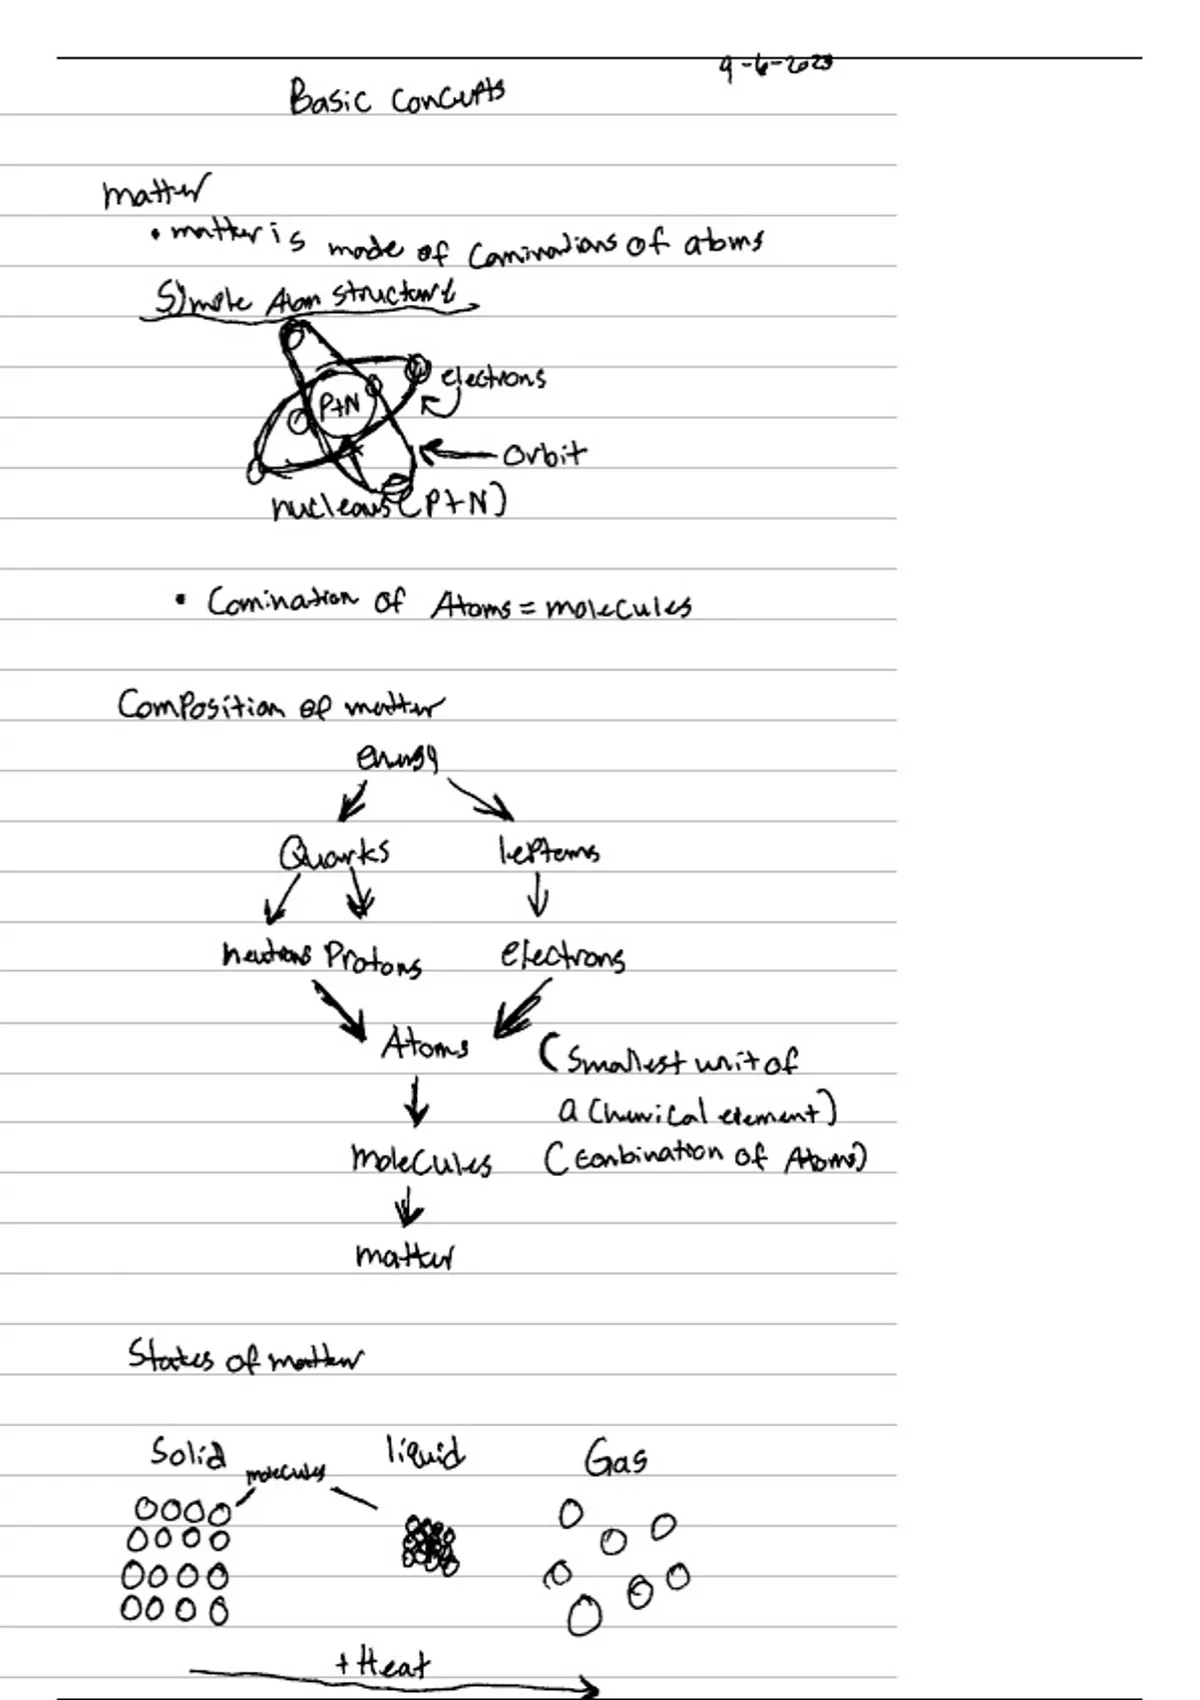 9-6-2023
Basic Concepts
matter
• matter is made of Cominations of atoms
Simple Atom structure
electrons
P+N
Orbit
nucleous (P+N)
• Comination of Atoms = molecules
Composition of matter
energy
Quarks leptons
neutrons Protons electrons
Atoms (Smallest unit of
a Chemical element)
molecules (Combination of Atoms)
matter
States of matter
Solid liquid Gas
molecules
+ Heat